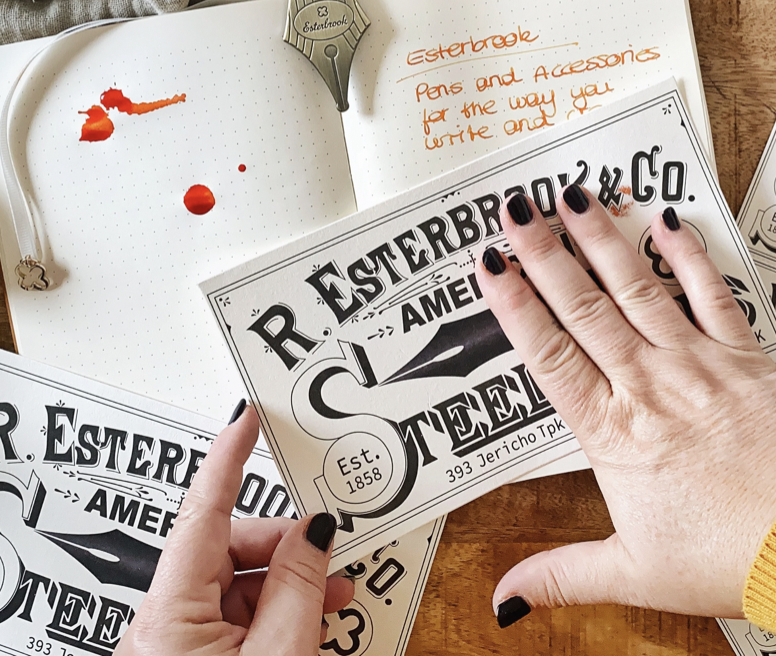 Esterbrook
Esterbrook
Pens and Accessories
for the way you
write and
R. ESTERBROOK & CO.
AMERI
STEEL
Est.
1858
393 Jericho Tpk
R. ESTERBROO
AMER
STEE
393
CO.